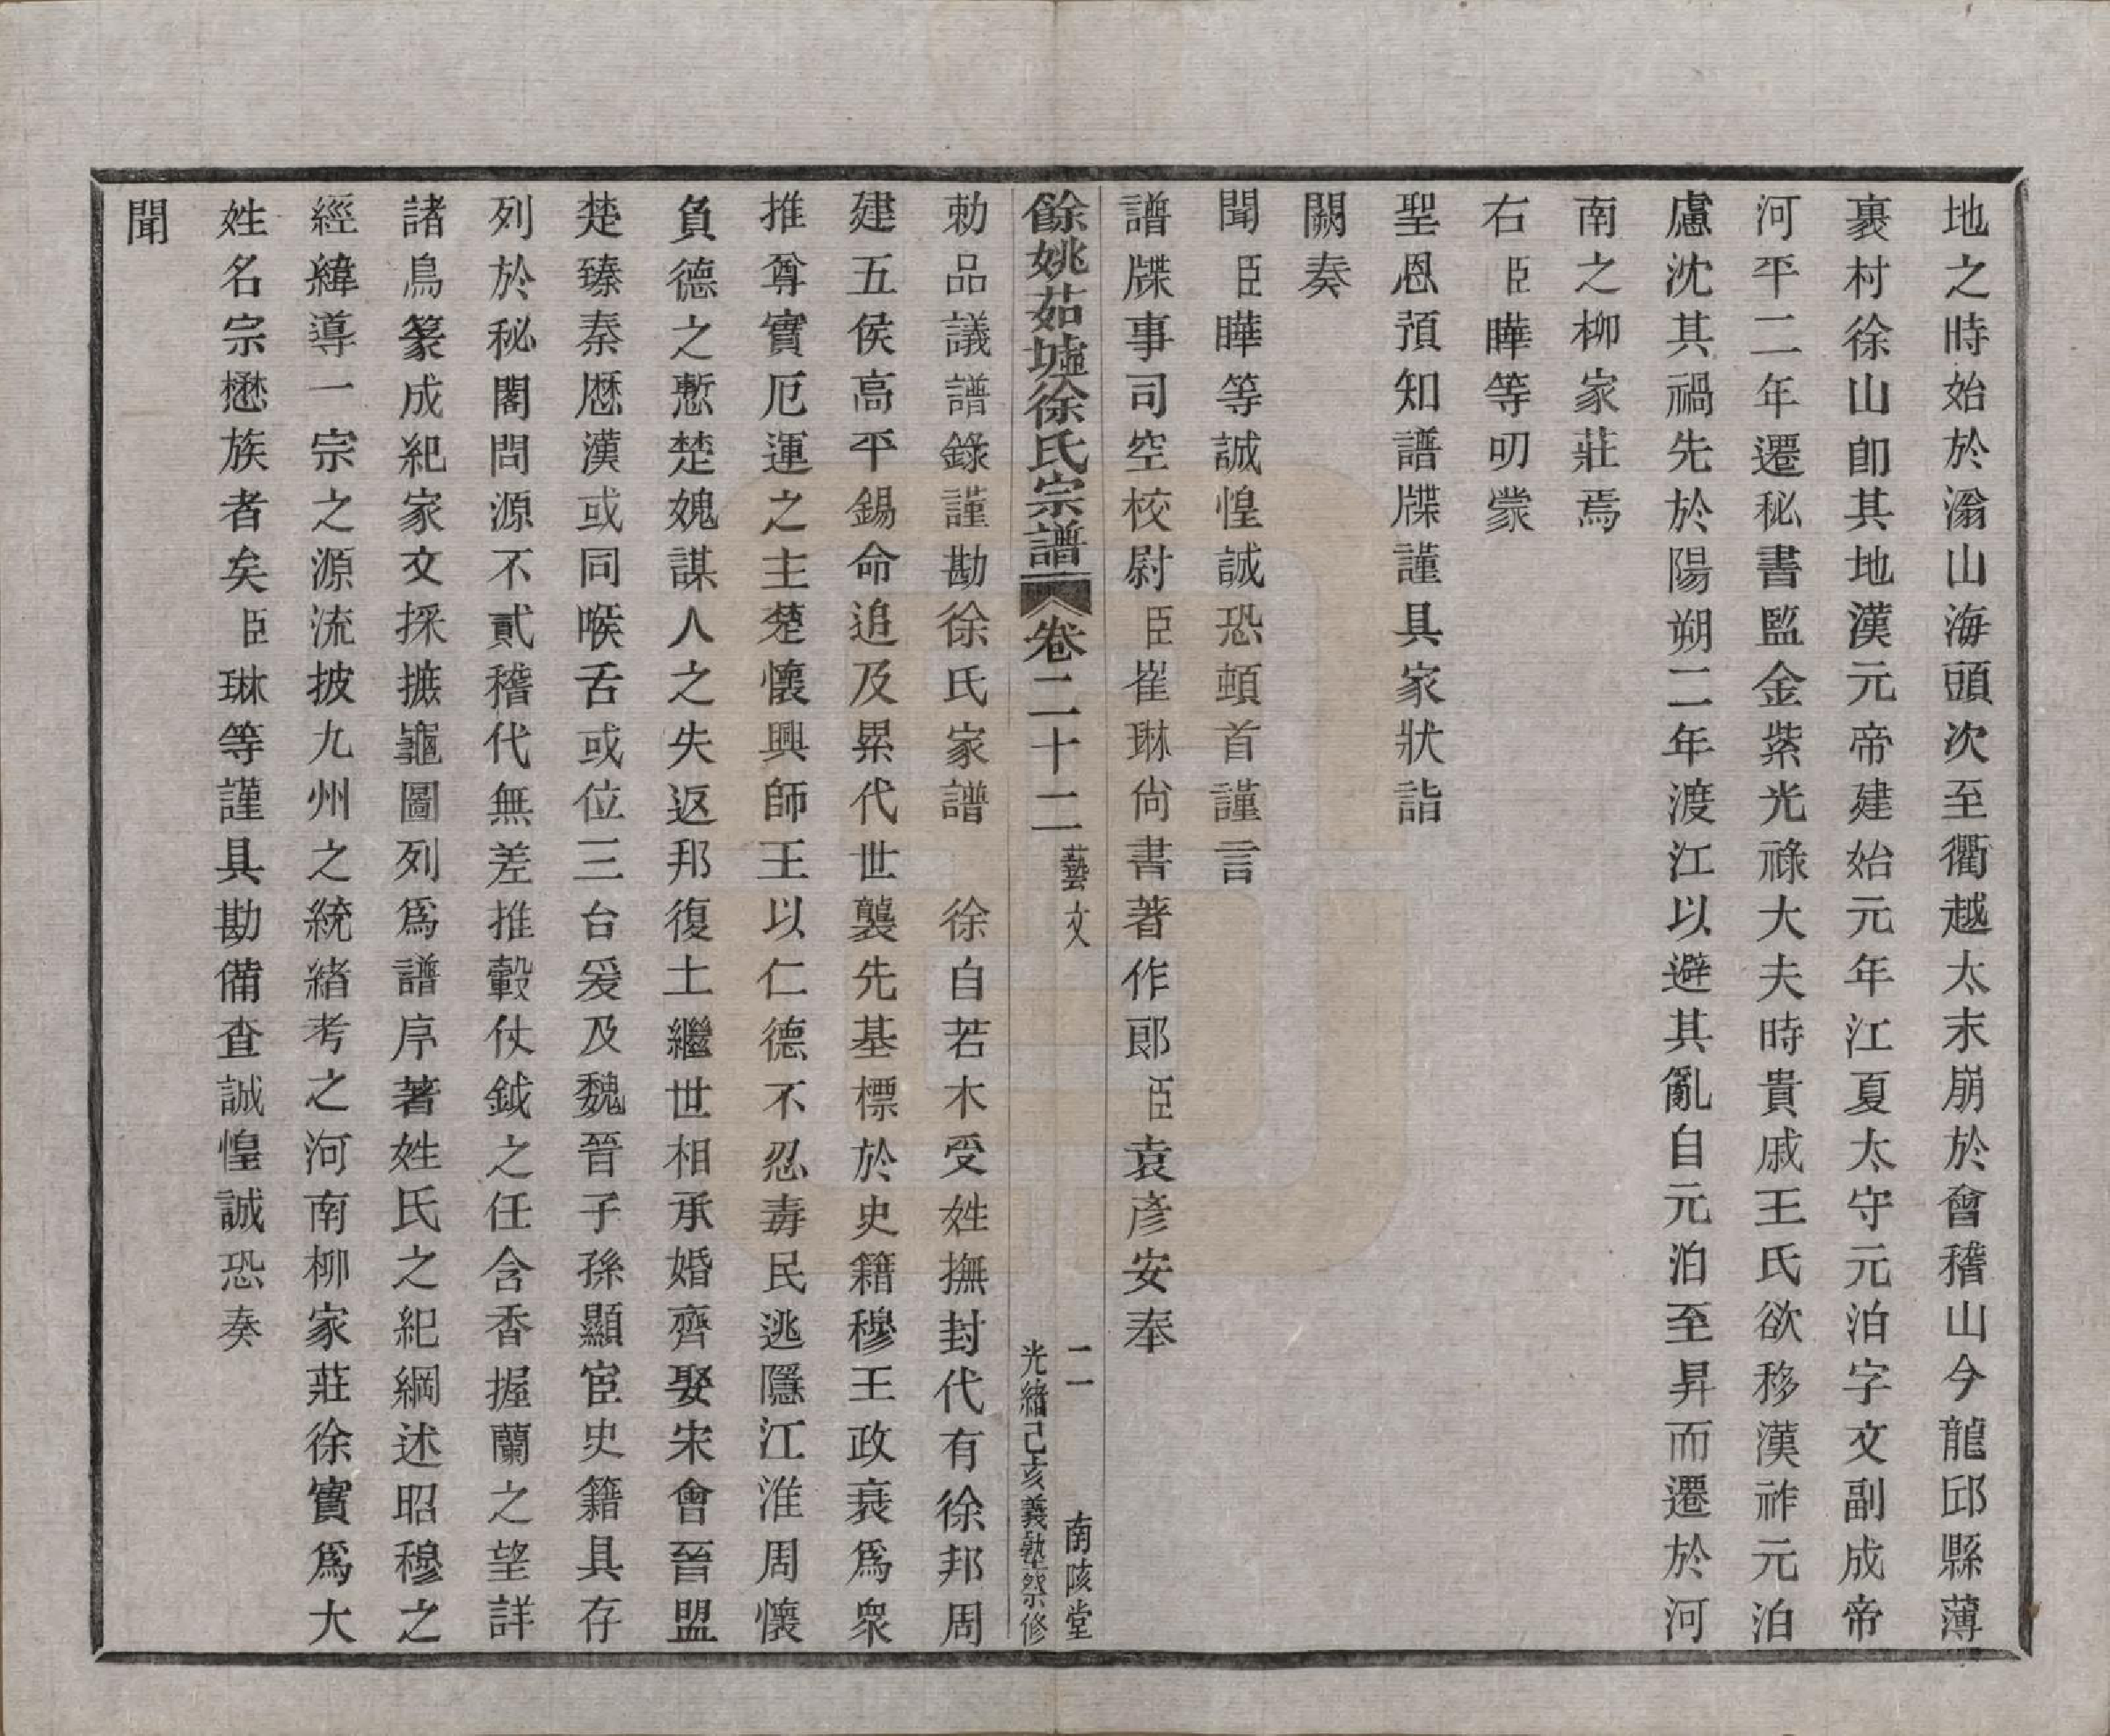 地之時始於滃山海頭次至衢越太末崩於會稽山今龍邱縣薄
裏村徐山卽其地漢元帝建始元年江夏太守元泊字文副成帝
河平二年遷秘書監金紫光祿大夫時貴戚王氏欲移漢祚元泊
慮沈其禍先於陽朔二年渡江以避其亂自元泊至昇而遷於河
南之柳家莊焉
右臣曄等叨蒙
聖恩預知譜牒謹具家狀詣
闕奏
聞臣曄等誠惶誠恐頓首謹言
譜牒事司空校尉臣崔琳尙書著作郎臣袁彥安奉
餘姚茹墟徐氏宗譜 卷二十二 藝文 二 南陔堂
光緒己亥義執祭修
勅品議譜錄謹勘徐氏家譜 徐自若木受姓撫封代有徐邦周
建五侯高平錫命追及累代世襲先基標於史籍穆王政衰爲衆
推尊實厄運之主楚懷興師王以仁德不忍毒民逃隱江淮周懷
負德之慙楚媿謀人之失返邦復土繼世相承婚齊娶宋會晉盟
楚臻秦歷漢或同喉舌或位三台爰及魏晉子孫顯宦史籍具存
列於秘閣問源不貳稽代無差推轂仗鉞之任含香握蘭之望詳
諸鳥篆成紀家文採摭龜圖列爲譜序著姓氏之紀綱述昭穆之
經緯導一宗之源流披九州之統緒考之河南柳家莊徐實爲大
姓名宗懋族者矣臣琳等謹具勘備查誠惶誠恐奏
聞